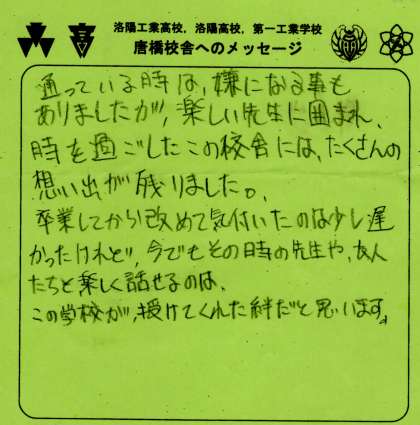 洛陽工業高校, 洛陽高校, 第一工業学校
唐橋校舎へのメッセージ
通っている時は、嫌になる事も
ありましたが、楽しい先生に囲まれ、
時を過ごしたこの校舎には、たくさんの
想い出が残りました。
卒業してから改めて気付いたのは少し遅
かったけれど、今でもその時の先生や、友人
たちと楽しく話せるのは、
この学校が、授けてくれた絆だと思います。